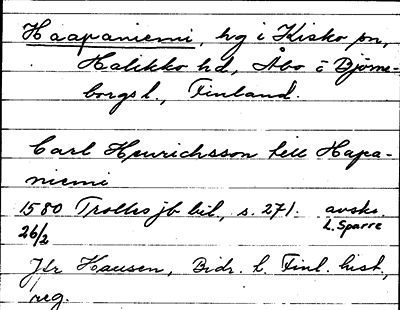 Haapaniemi, hg i Kisko sn,
Halikko hd, Åbo o Björne-
borgs l., Finland.
Carl Henrichsson till Hapa-
niemi
1580 Trolles jb bil, s. 271. avskr.
26/2 L. Sparre
Jfr Hausen, Bidr. t. Finl. hist.,
reg.